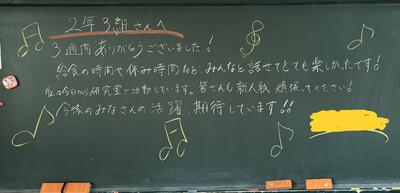 2年3組さんへ
3週間ありがとうございました!
給食の時間や休み時間など、みんなと話せてとても楽しかったです!
私は今日から研究室で活動しています。皆さんも新人戦、頑張ってください!
今後のみなさんの活躍、期待しています!!